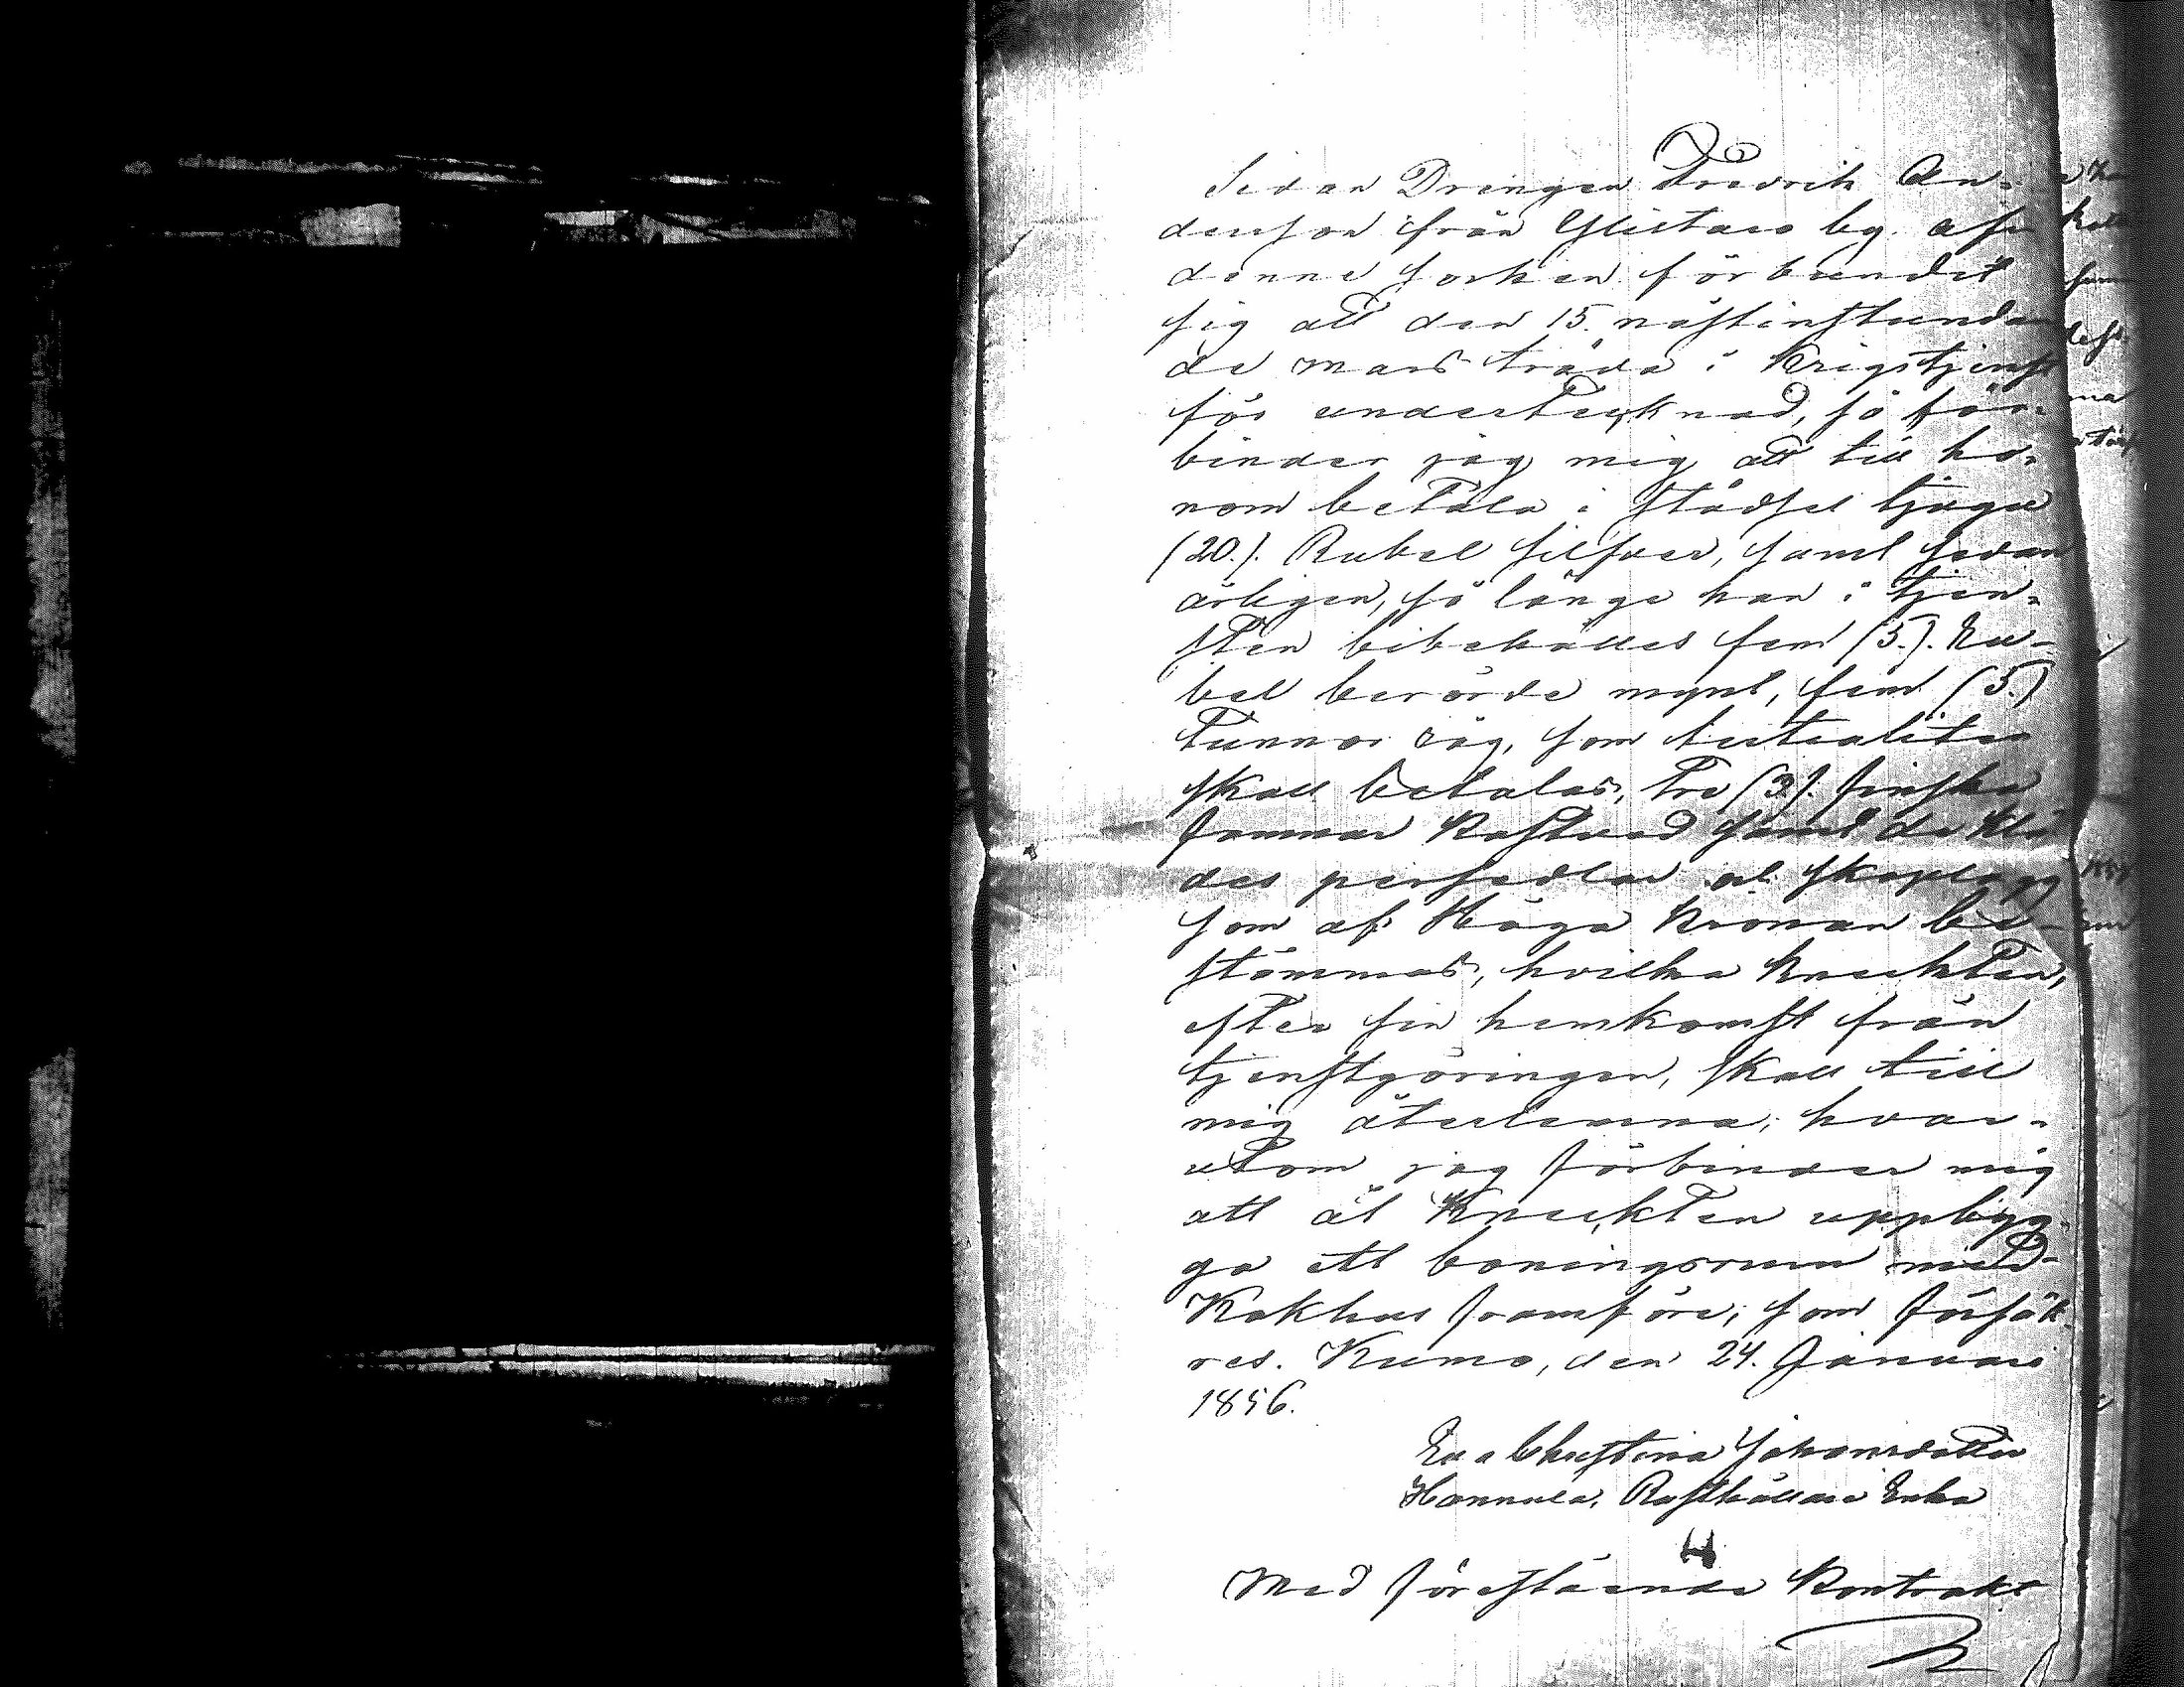 Sedan Drengen Fredrik An-
dersson från Ylistaro by af
denne socken förbundit
sig att den 15. nästinstundan
de mars träda i Krigstjenst
för undertecknad, så för-
binder jag mig att till ho-
nom betala i städsel tjugu
(20.) Rubel silfver, samt sedan
årligen, så länge han i tjen-
sten bibehålles fem (5.) Ru-
bel berörde mynt, fem (5.)
Tunnor råg, som tertialiter
skall betalas, Tre (3.) finska
famnar Kastved samt de Klä
des persedlar och skoplagg
som af Höga Kronan be-
stämmas, hvilka Knekten,
efter sin hemkomst från
tjenstgöringen, skall till
mig återlemna; hvar-
utom jag förbinder mig
att åt Knekten uppbyg-
ga ett boningsrum med
Kokhus framföre; som försäk-
res. Kumo, den 24. Januari
1856.
Eva Christina Johansdotter
Hannula, Rusthållare Enka
Med förestående Kontrakt